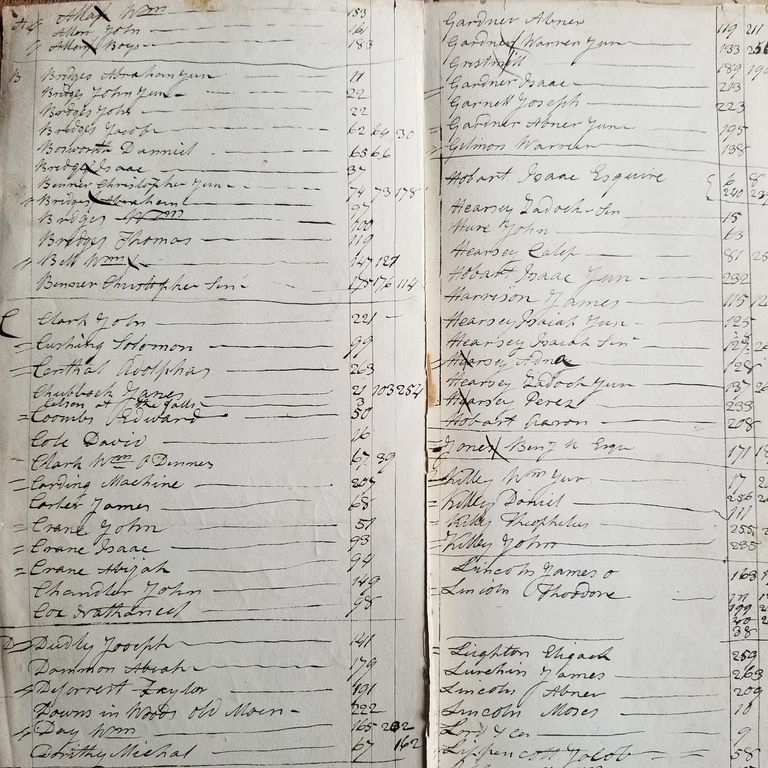 A Allan Wm 153
Allen John 161
Allen Boys 183
B Bridges Abraham Jun 11
Bridges John Jun 22
Bridges John 22
Bridges Jacob 62 64 30
Bosworth Danneil 65 66
Bridges Isaac 37
Benner Christopher Jun 74 73 178
Bridges Abraham 97
Bridges Wm 100
Bridges Thomas 119
Bell Wm 147 127
Benner Christopher Sen 175 176 114
C Clark John 221
Cushing Solomon 99
Centhal Adolphas 263
Chubbock James 21 103 254
at the falls 3
Coombs Edward 50
Cole David 16
Clark Wm O Dinnes 67 39
Carding Machine 207
Carter James 68
Crane John 51
Crane Isaac 93
Crane Abijah 94
Chandler John 149
Cox Nathaneel 98
D Dudly Joseph 141
Dammon Abiah 179
Deforrest Taylor 191
Downs in Woods old Moen 222
Day Wm 165 202
Dorithy Michal 67 162
Gardner Abner 119 211
Gardner Warren Jun 133 256
Gristmill 189 190
Gardner Isaac 213
Garnett Joseph 223
Gardner Abner Jun 195
Gilmon Warren 138
Hobart Isaac Esquire 6 8
240 237
Hearsey Zadock Sen 15
Hure John 63
Hearsey Calep 81 25
Hobart Isaac Jun 232
Harrison James 115 12
Hearsey Isaiah Jun 125
Hearsey Isaiah Sen 127 26
Hearsey Adna 128
Hearsey Zadock Jun 137 26
Hearsy Perez 233
Hobart Aaron 208
Jones Benj R Esqu 171
Killey Wm Jun 17
Killey Daniel 256
111
Killey Theophelus 255
Killey John 235
Lincoln James O 163
Lincoln Theodore
199
40
38
Leighton Eligach 259
Lurchin James 263
Lincoln Abner 209
Lincoln Moses 10
Lord 9
Lippencott Jacob 58